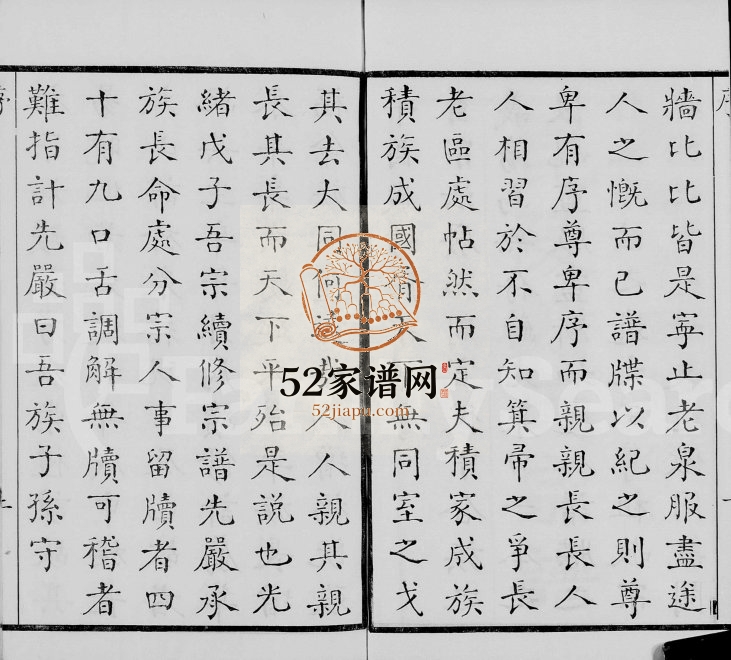 牆比比皆是寧止老泉服盡途
人之慨而已譜牒以紀之則尊
卑有序尊卑序而親親長長人
人相習於不自知箕帚之爭長
老區處帖然而定夫積家成族
積族成國 無同室之戈
其去大同 人人親其親
長其長而天下平殆是說也光
緒戊子吾宗續修宗譜先嚴承
族長命處分宗人事留牘者四
十有九口舌調解無牘可稽者
難指計先嚴曰吾族子孫守
序
52家谱网
52jiapu.com